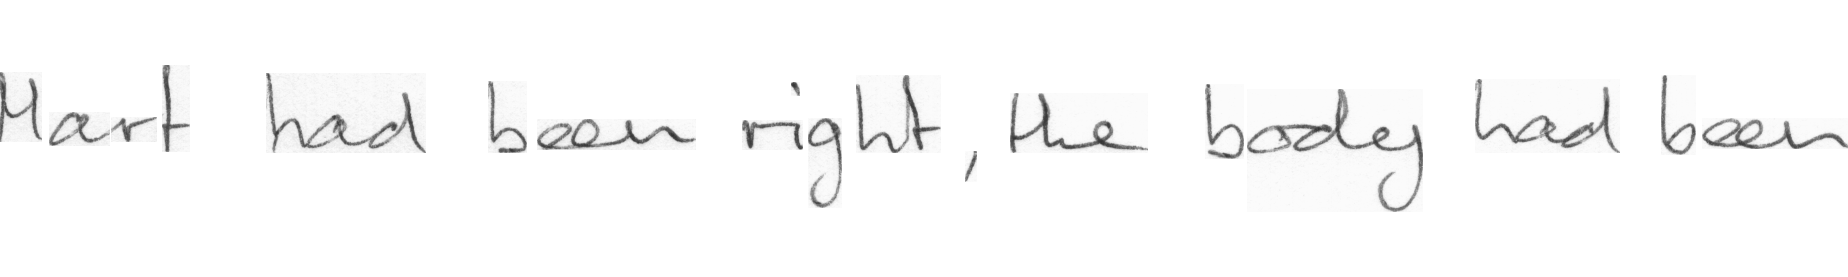 Mart had been right, the body had been